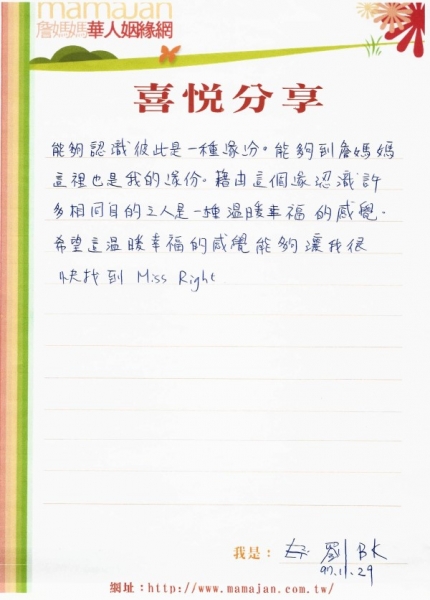 mamajan
詹媽媽華人姻緣網
喜悅分享
能夠認識彼此是一種緣份。能夠到詹媽媽
這裡也是我的緣份。藉由這個緣認識許
多相同目的之人是一種溫暖幸福的感覺.
希望這溫暖幸福的感覺能夠讓我很
快找到 Miss Right
我是： 劉 BK
97.11.29
網址：http://www.mamajan.com.tw/